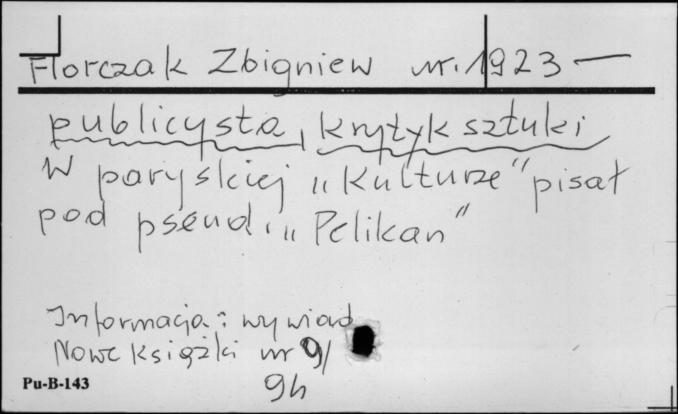 Florczak Zbigniew ur. 1923 —
publicysta, krytyk sztuki
W paryskiej „Kulturze" pisał
pod pseud. „Pelikan"
Informacja: wywiad
Nowe Książki nr 9/
94
Pu-B-143